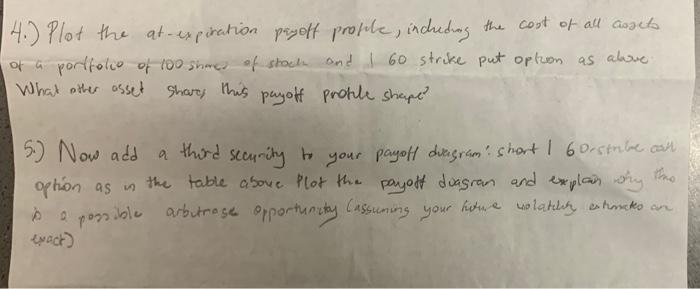 4.) Plot the at-expiration payoff profile, including the cost of all assets
of a portfolio of 100 shares of stock and 1 60 strike put option as above
What other asset shares this payoff profile shape?
5.) Now add a third security to your payoff diagram: short 1 60-strike call
option as in the table above Plot the payoff diagram and explain why this
is a possible arbitrage opportunity (assuming your future volatility estimates are
exact)